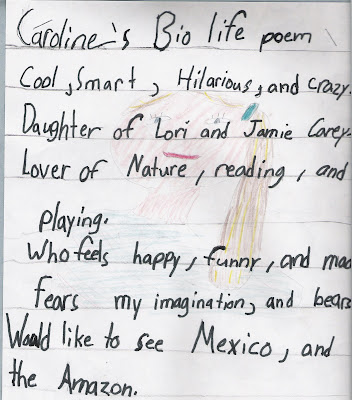 Caroline's Bio life poem
Cool, Smart, Hilarious, and crazy.
Daughter of Lori and Jamie Carey.
Lover of Nature, reading, and
playing.
Who feels happy, funny, and mad
fears my imagination, and bears
Would like to see Mexico, and
the Amazon.